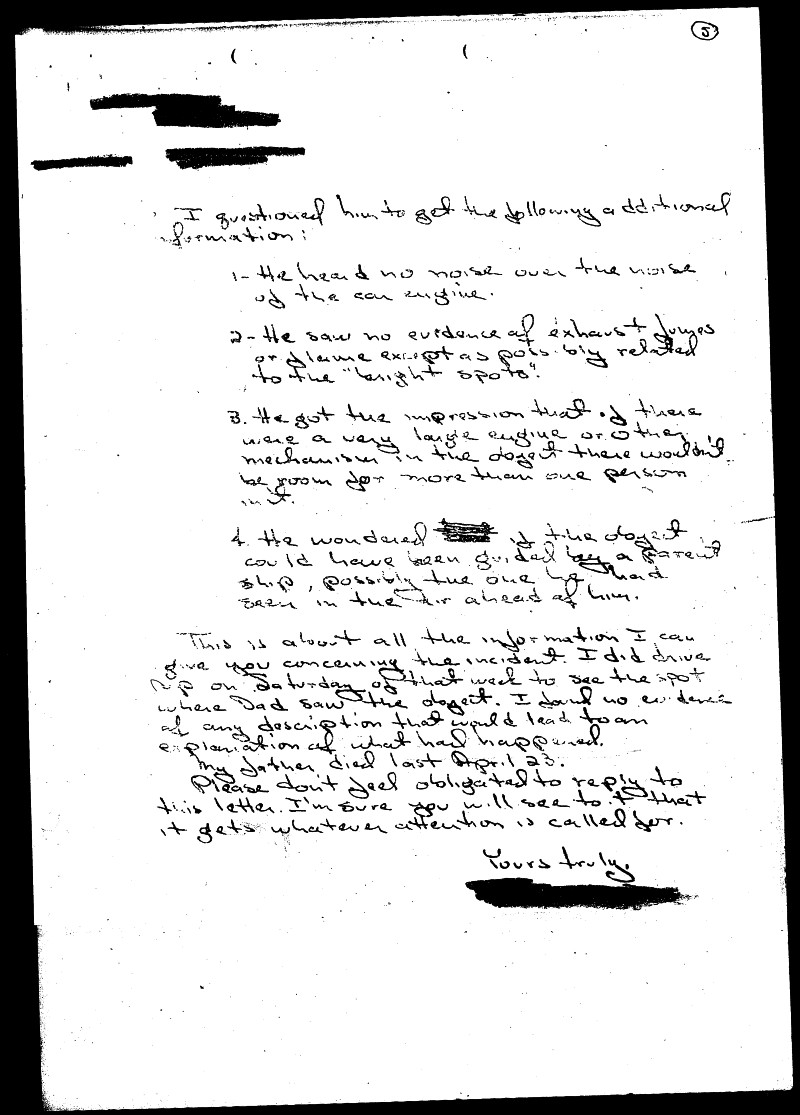 5
I questioned him to get the following additional
formation:
1- He heard no noise over the noise
of the car engine.
2- He saw no evidence of exhaust fumes
or flame except as possibly related
to the "bright spots".
3. He got the impression that if there
were a very large engine or other
mechanism in the object there wouldn't
be room for more than one person
in it.
4. He wondered if the object
could have been guided by a parent
ship, possibly the one he had
seen in the air ahead of him.
This is about all the information I can
give you concerning the incident. I did drive
up on Saturday of that week to see the spot
where Dad saw the object. I found no evidence
of any description that would lead to an
explaniation of what had happened.
My father died last April 23.
Please don't feel obligated to reply to
this letter. I'm sure you will see to it that
it gets whatever attention is called for.
Yours truly,